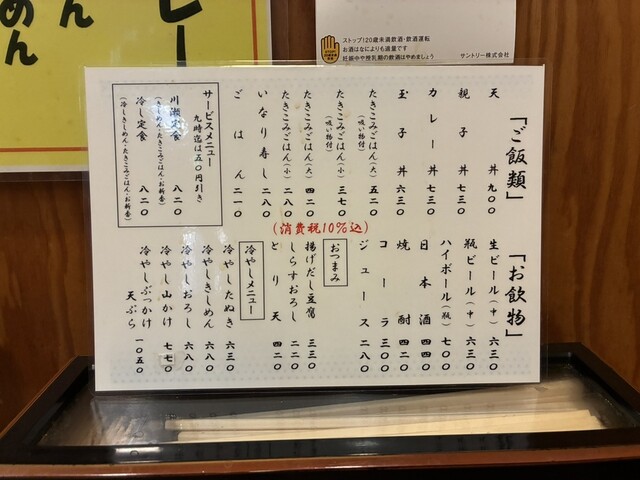 めん
ん
レー
ストップ!20歳未満飲酒・飲酒運転
お酒はなによりも適量です
妊娠中や授乳期の飲酒はやめましょう
サントリー株式会社
「ご飯類」
天丼 九〇〇
親子丼 七三〇
カレー丼 七三〇
玉子丼 六三〇
たきこみごはん(大) 五二〇
(吸い物付)
たきこみごはん(小) 三七〇
(吸い物付)
たきこみごはん(大) 四二〇
たきこみごはん(小) 二八〇
いなり寿し 二八〇
ごはん 二一〇
サービスメニュー
九時迄は五〇円引き
川瀬定食 八二〇
(きしめん・たきこみごはん・お新香)
冷し定食 八二〇
(冷しきしめん・たきこみごはん・お新香)
(消費税10%込)
「お飲物」
生ビール(中) 六三〇
瓶ビール(中) 六三〇
ハイボール(瓶) 七〇〇
日本酒 四四〇
焼酎 四二〇
コーラ 三〇〇
ジュース 二八〇
おつまみ
揚げだし豆腐 三三〇
しらすおろし 二二〇
とり天 四二〇
冷やしメニュー
冷やしたぬき 六三〇
冷やしきしめん 六八〇
冷やしおろし 六八〇
冷やし山かけ 七七〇
冷やしぶっかけ
天ぷら 一〇五〇